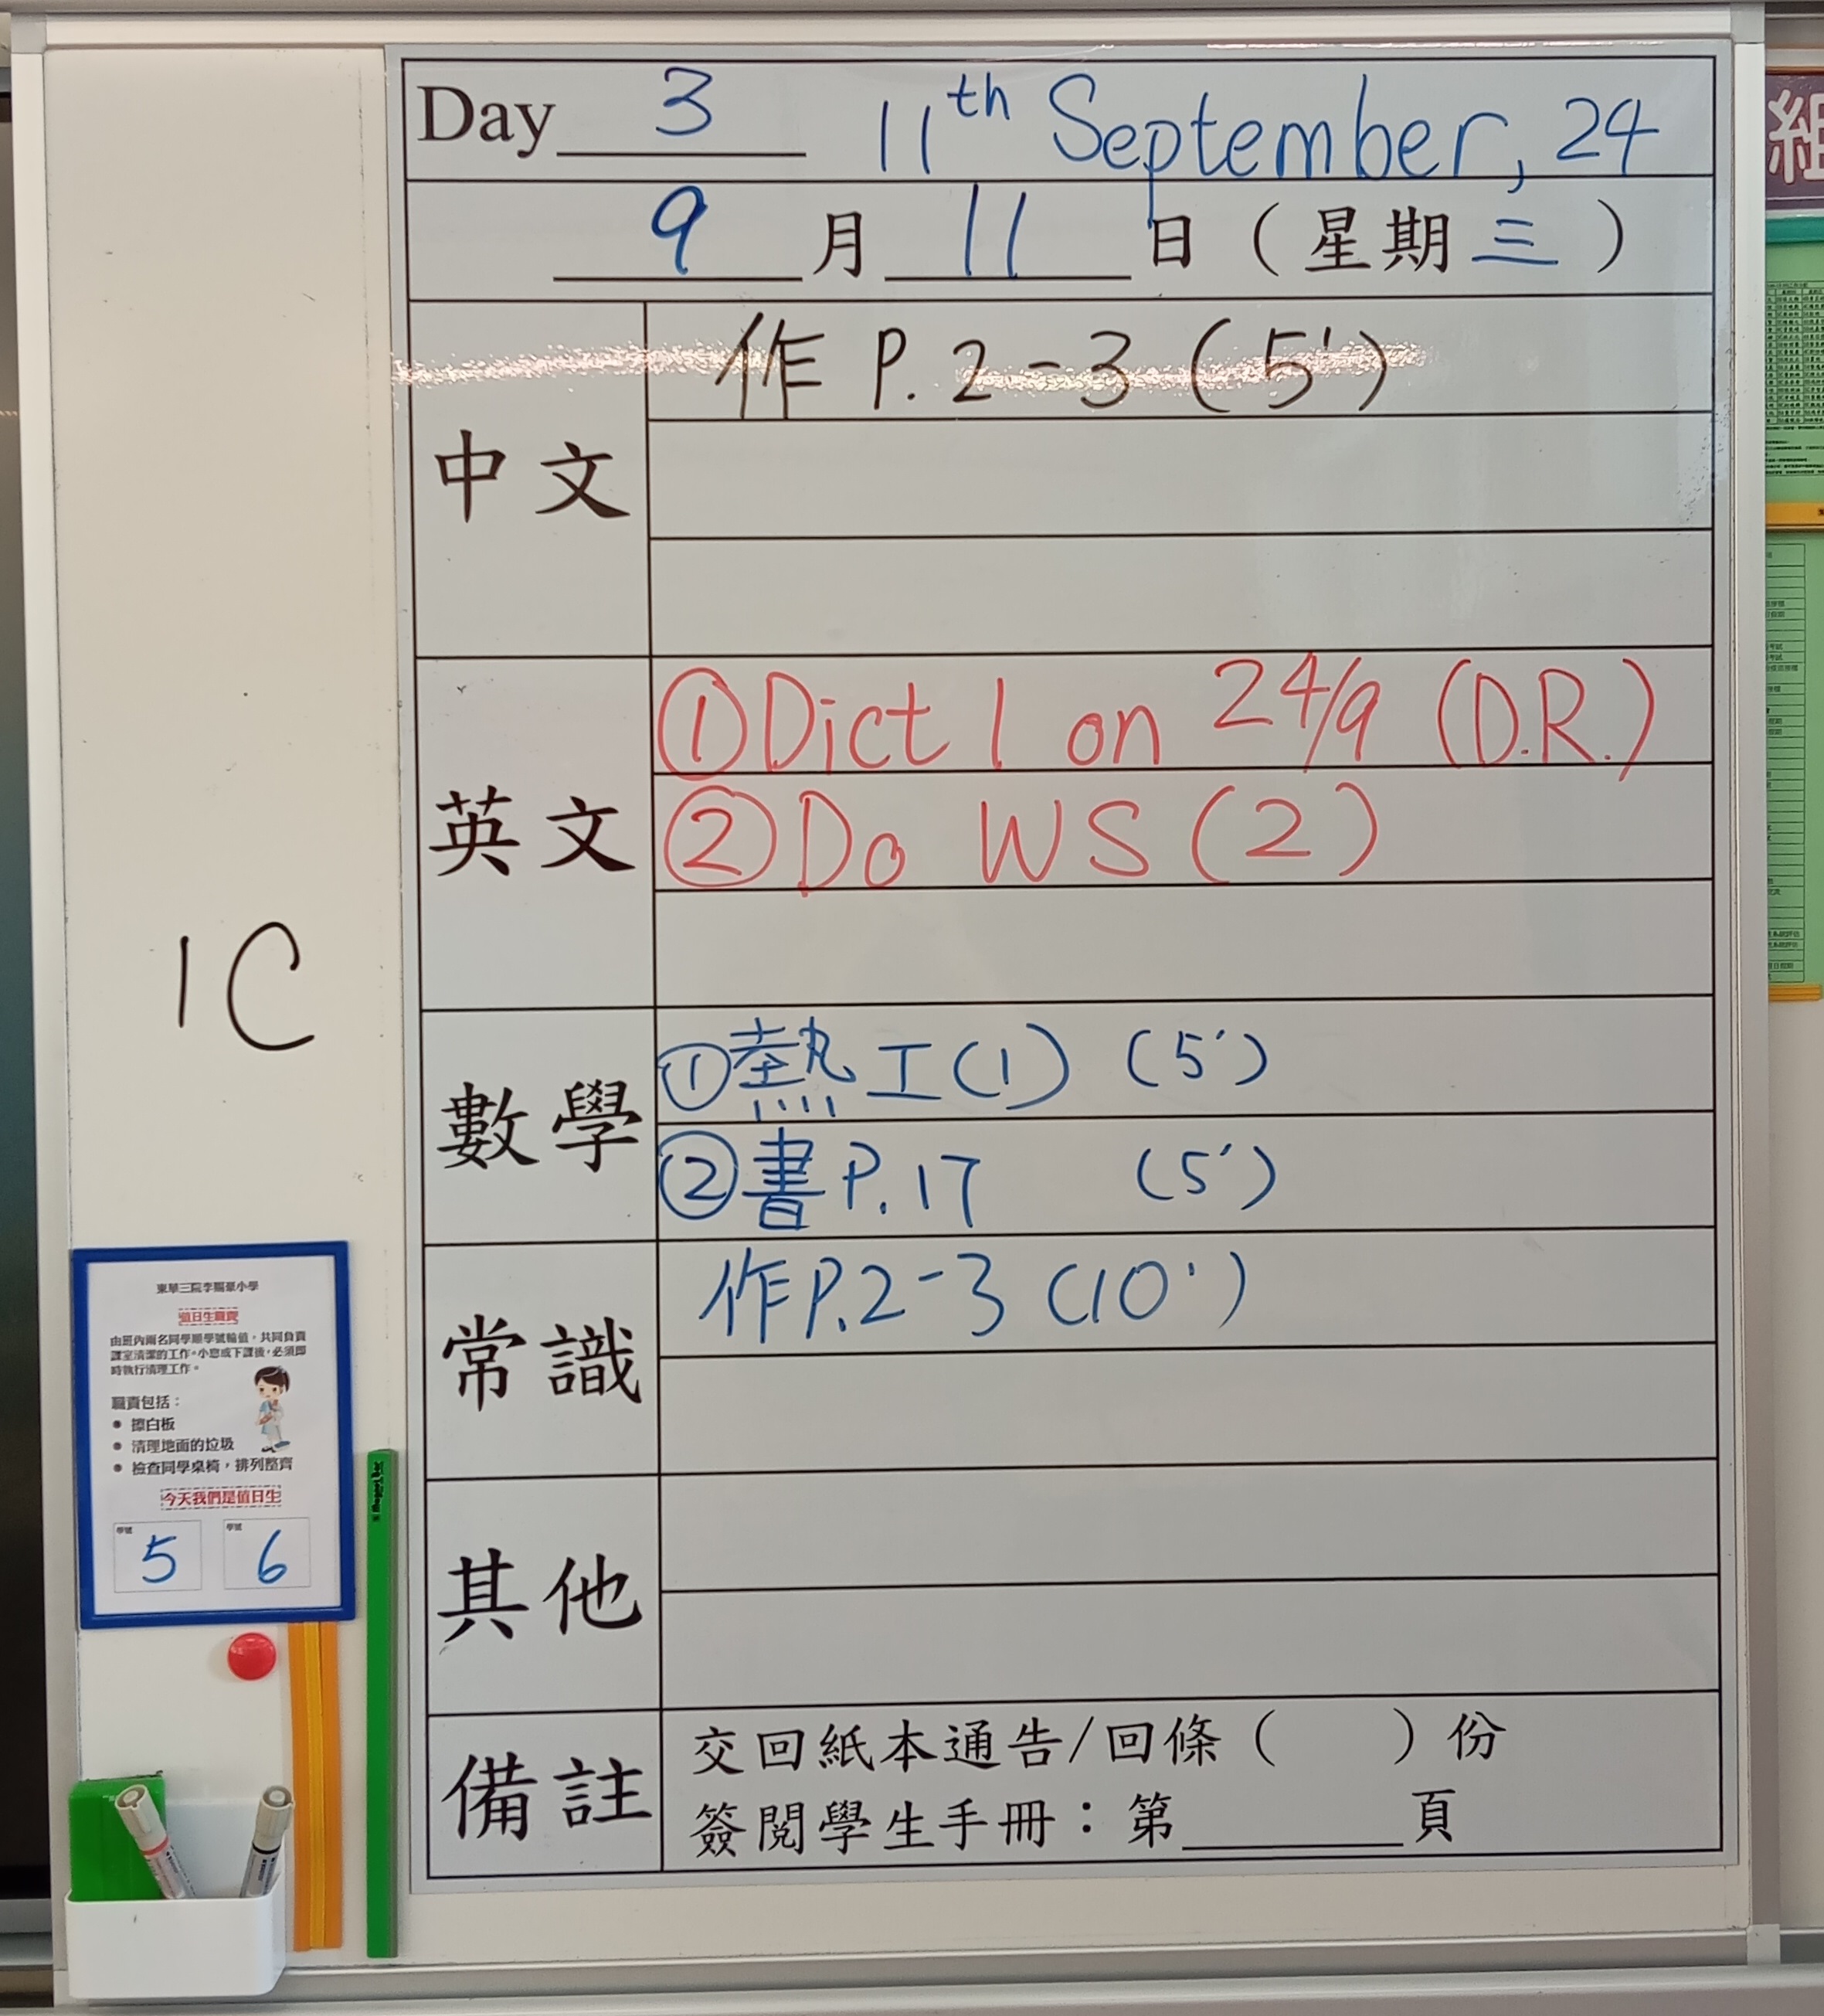 Day 3 11th September, 24
9 月 11 日 ( 星期 三 )
中文
作 P. 2-3 (5')
英文
① Dict 1 on 24/9 (D.R.)
② Do WS (2)
數學
① 熱工(1) (5')
② 書 P.17 (5')
常識
作 P.2-3 (10')
其他
備註
交回紙本通告/回條 ( ) 份
簽閱學生手冊：第______頁
1C
東華三院李賜豪小學
值日生職責
由班內兩名同學順學號輪值，共同負責
課室清潔的工作。小息或下課後，必須即
時執行清理工作。
職責包括：
擦白板
清理地面的垃圾
檢查同學桌椅，排列整齊
今天我們是值日生
學號 5
學號 6
組